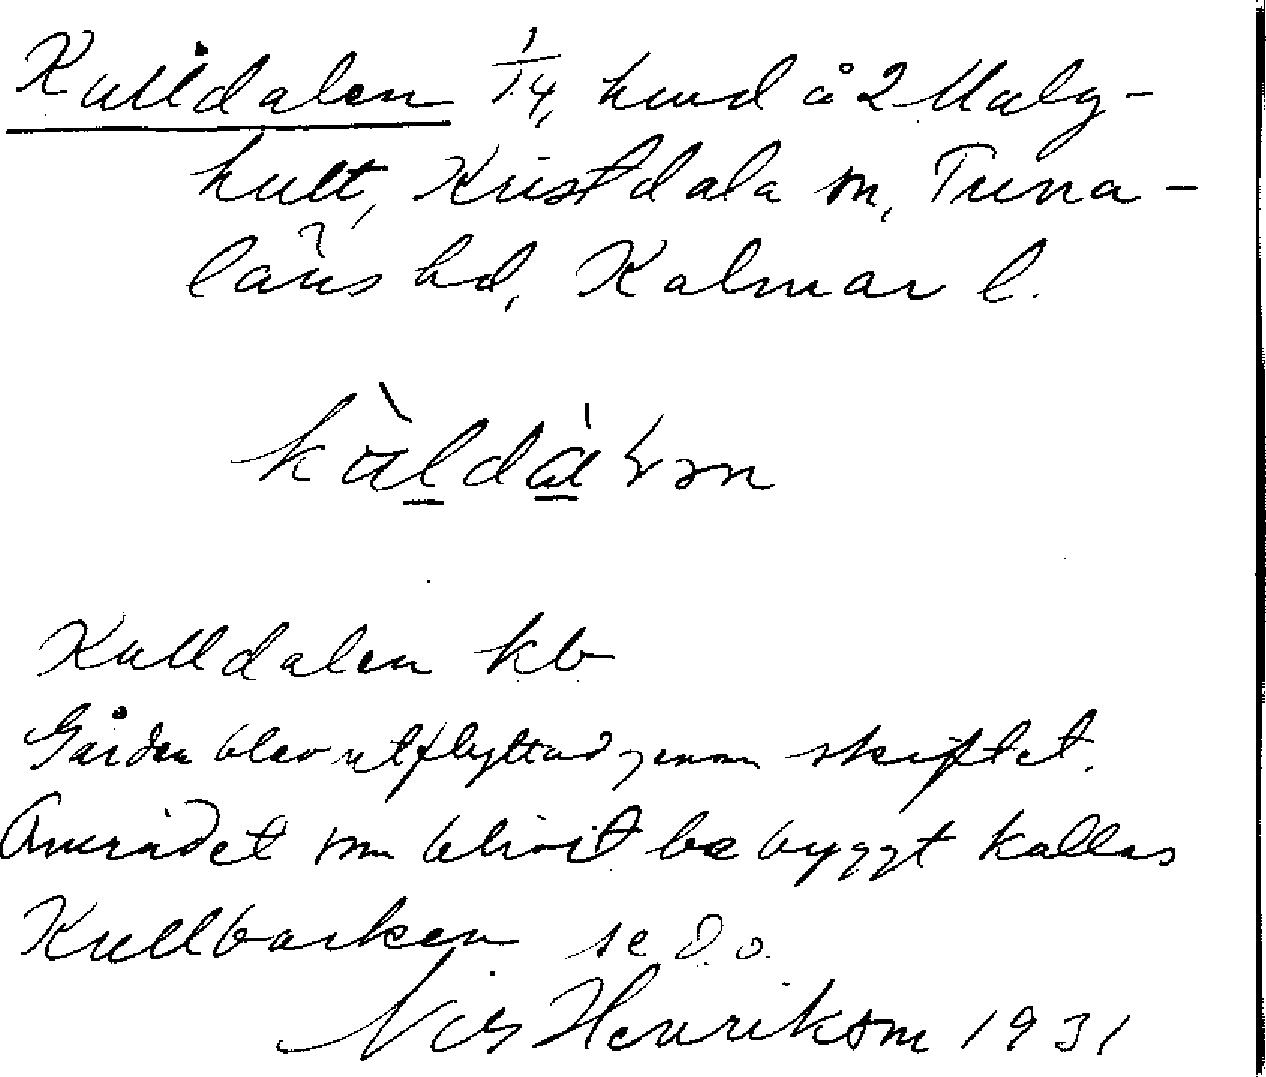 Kulldalen 1/14, hmd å 2 Malg-
hult, Kristdala sn, Tuna-
läns hd, Kalmar l.
Kulldalen kb
Gården blev utflyttad genom skiftet.
Området som blivit bebyggt kallas
Kullbacken se d.o.
Nils Henrikson 1931